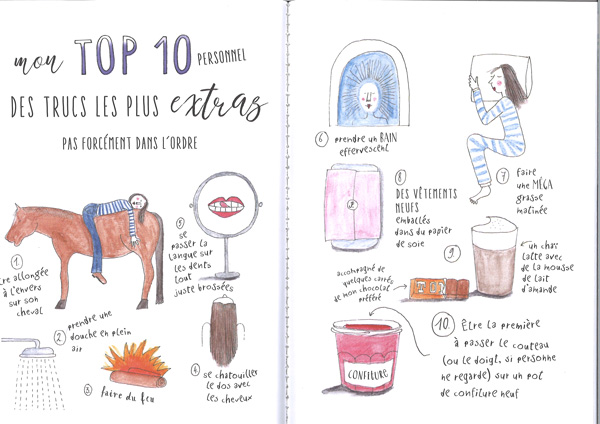 mon TOP 10 PERSONNEL
DES TRUCS LES PLUS extras
PAS FORCÉMENT DANS L'ORDRE
1.
être allongée
à l'envers
sur son
cheval
2 prendre une
douche en plein
air
3 faire du feu
4 se chatouiller
le dos avec
les cheveux
5 se
passer la
langue sur
les dents
tout
juste brossées
6 prendre un BAIN
effervescent
7 faire
une MÉGA
grasse
matinée
8
DES VÊTEMENTS
NEUFS
emballés
dans du papier
de soie
9.
un chaï
latté avec
de la mousse
de lait
d'amande
accompagné de
quelques carrés
de mon chocolat
préféré
10. Être la première
à passer le couteau
(ou le doigt, si personne
ne regarde) sur un pot
de confiture neuf
CONFITURE